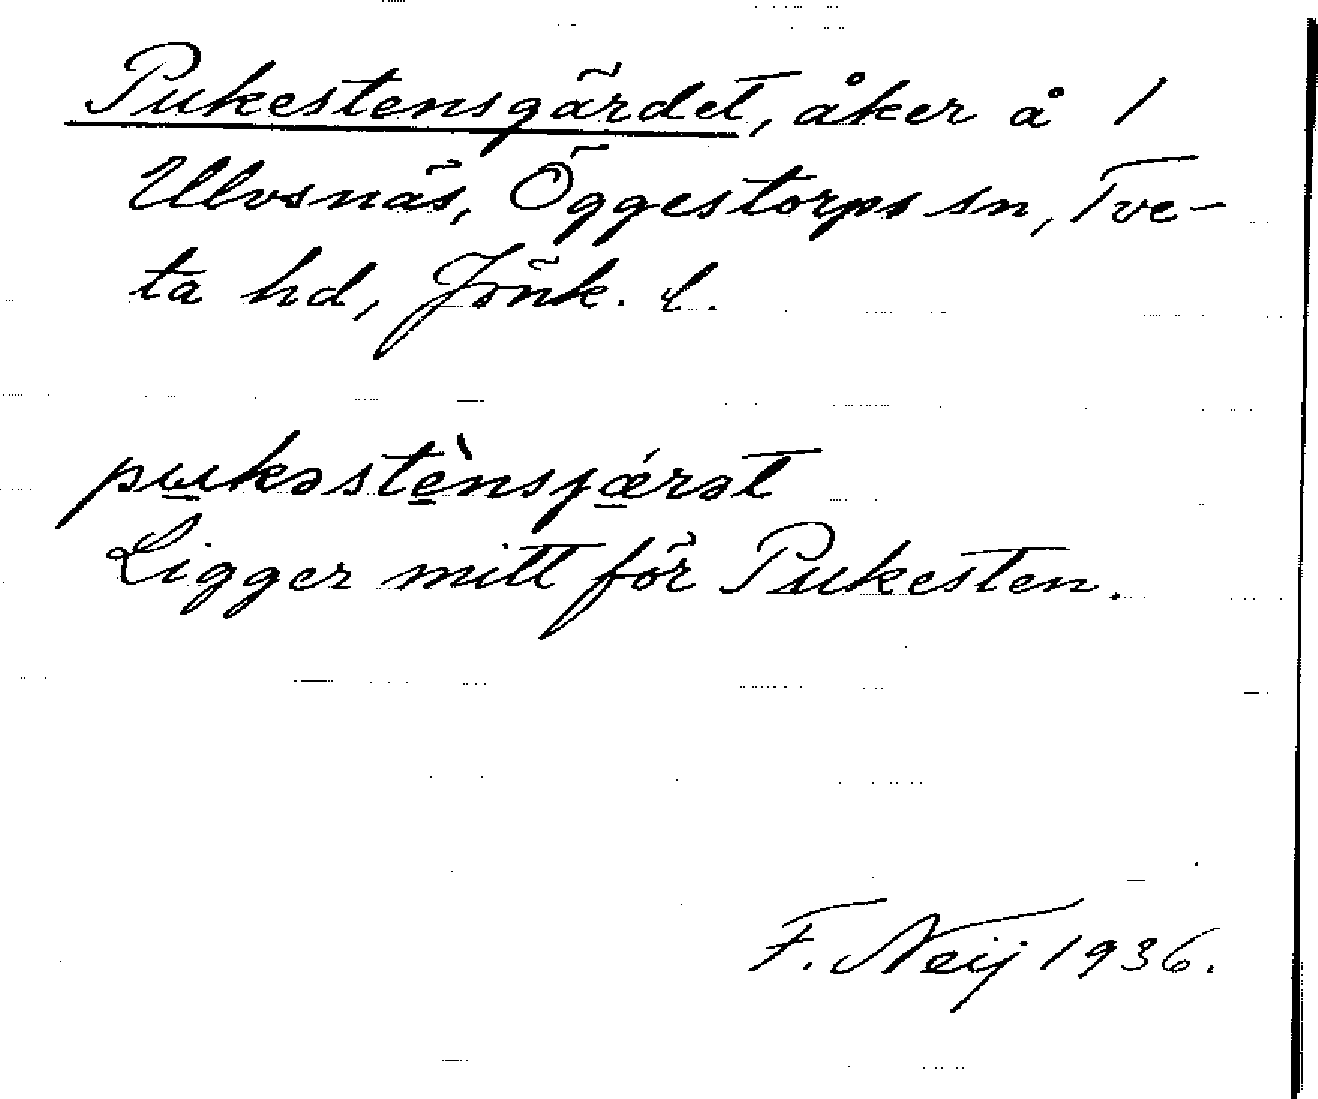 Pukestensgärdet, åker å 1
Ulvsnäs, Öggestorps sn, Tve-
ta hd, Jönk. l.
pukəstènsjǽrət
Ligger mitt för Pukesten.
F. Neij 1936.